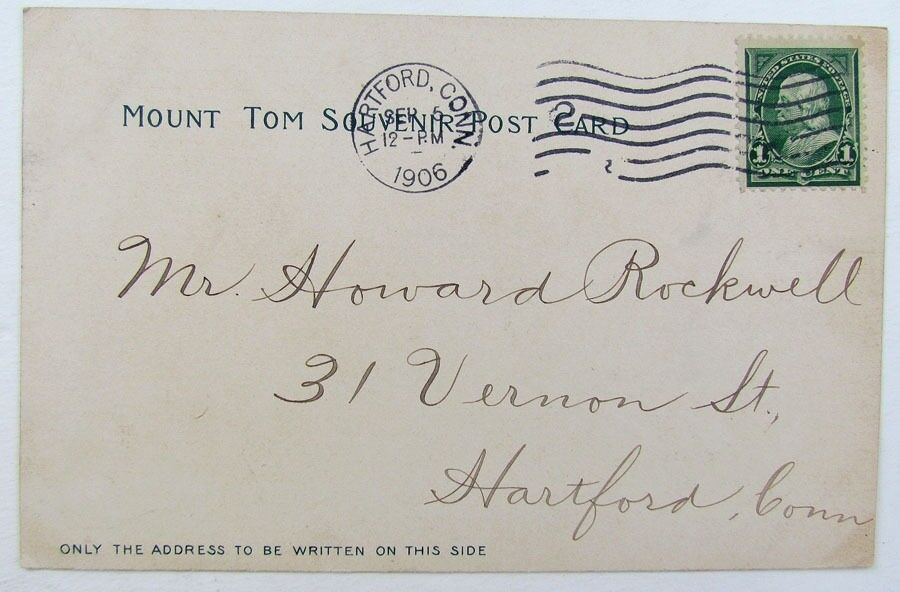 HARTFORD, CONN.
SEP 5
12-PM
1906
MOUNT TOM SOUVENIR POST CARD
2
UNITED STATES POSTAGE
1 1
ONE CENT
Mr. Howard Rockwell
31 Vernon St.,
Hartford, Conn
ONLY THE ADDRESS TO BE WRITTEN ON THIS SIDE